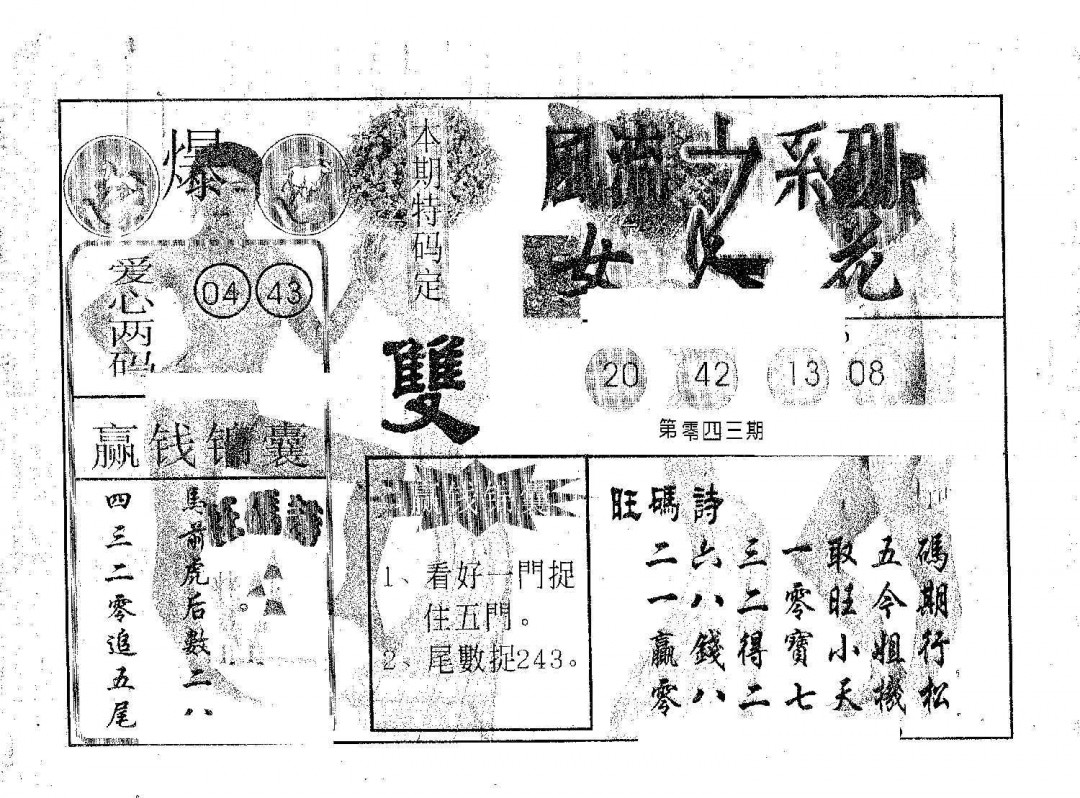 爆
爱心两码
04 43
本期特码定
雙
風流之系列
女人花
20 42 13 08
第零四三期
赢钱锦囊
旺碼詩
馬前虎后數二八
四三二零追五尾
赢钱锦囊
1、看好一門捉
住五門。
2、尾數捉243。
旺碼詩
二六三一取五碼
一八二零旺今期
贏錢得寶小姐行
零八二七天機松